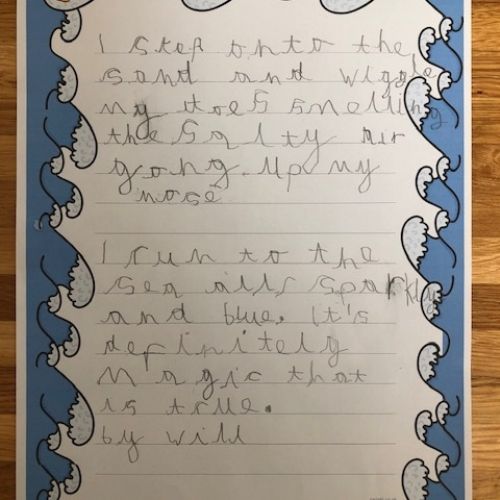 I step onto the
sand and wiggle
my toes smelling
the salty air
going up my
nose
I run to the
sea all sparkly
and blue. It's
definitely
magic that
is true.
by will